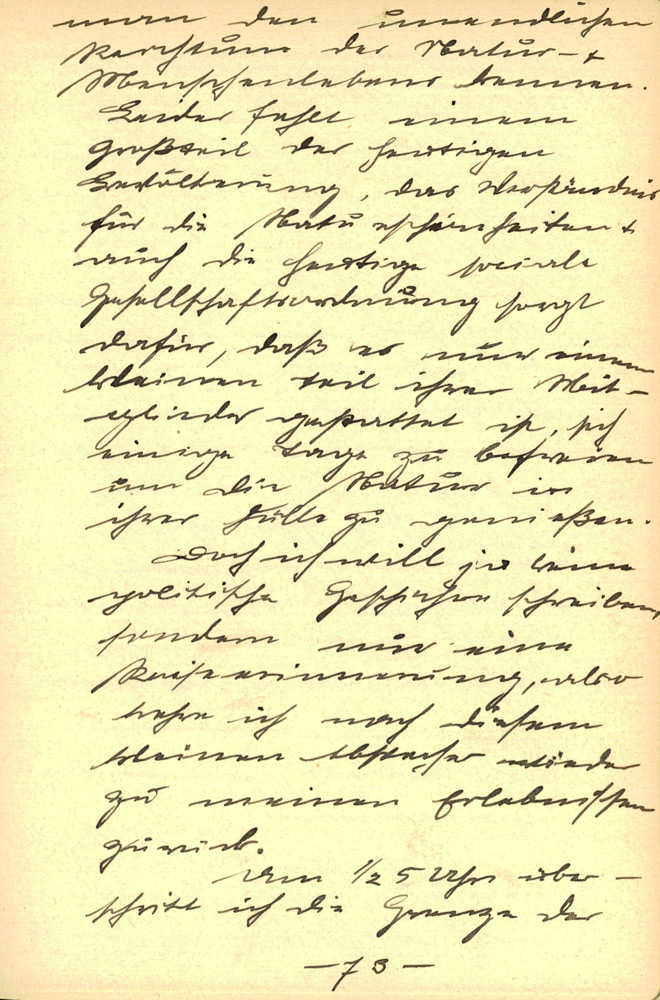 man den unendlichen
Reichtum der Natur- +
Menschenlebens kennen.
Leider fehlt einem
Großteil der heutigen
Bevölkerung, das Verständnis
für die Naturschönheiten +
auch die heutige sociale
Gesellschaftsordnung sorgt
dafür, daß es nur einem
kleinen teil ihrer Mit-
glieder gestattet ist, sich
einige Tage zu befreien
um die Natur in
ihrer Fülle zu genießen.
Doch ich will ja keine
politische Geschichten schreiben,
sondern nur eine
Reiseerinnerung, also
kehre ich nach diesem
kleinen Abstecher wieder
zu meinen Erlebnissen
zurück.
Um 1/2 5 Uhr über-
schritt ich die Grenze der
- 73 -